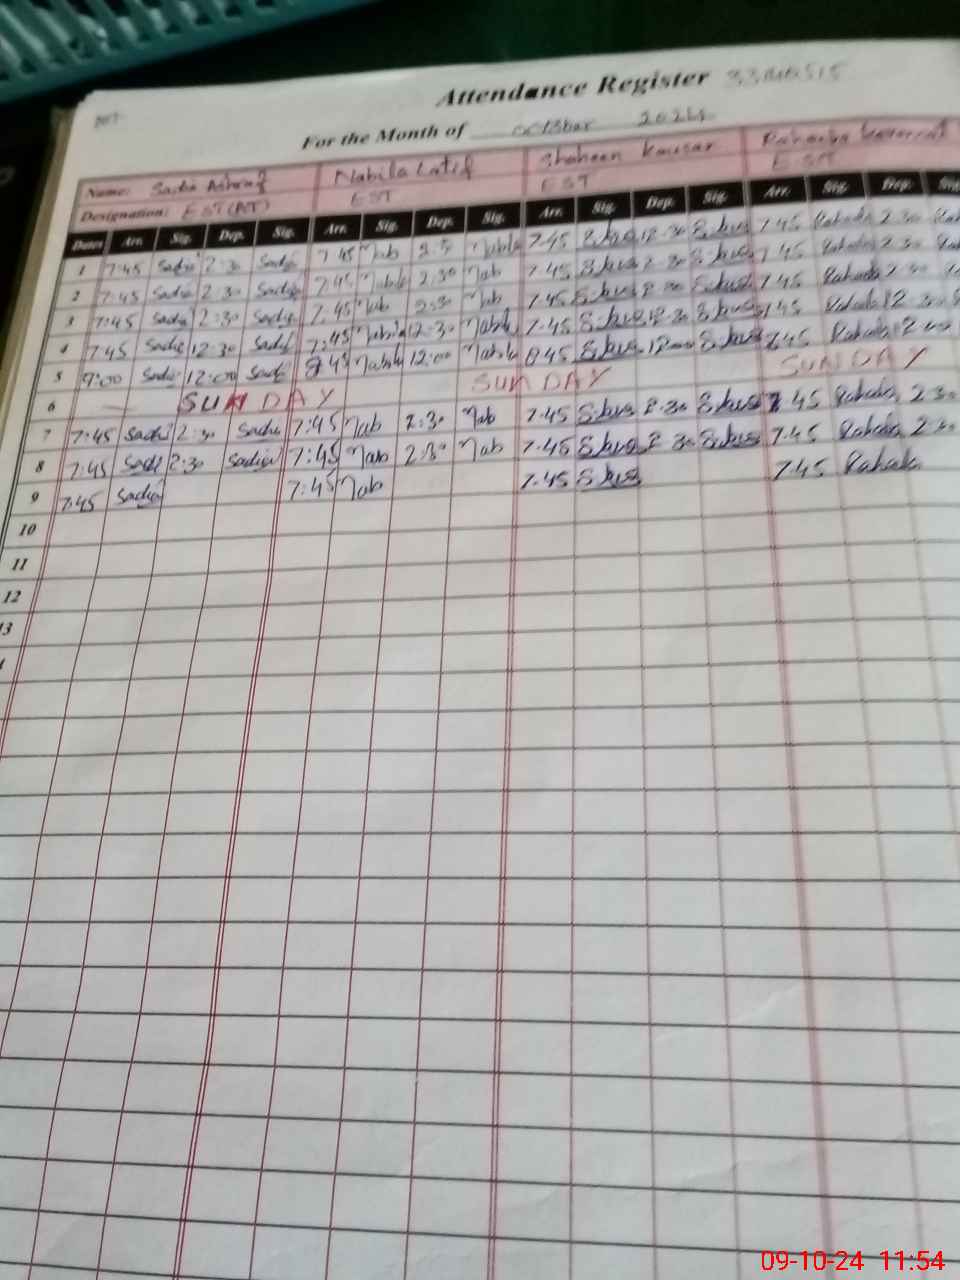 Attendance Register 33310515
For the Month of October 2024
Name: Sadia Ashraf Nabila Latif Shaheen Kausar Kausar
Designation: EST(AT) EST EST EST
Dates Arr. Sig. Dep. Sig. Arr. Sig. Dep. Sig. Arr. Sig. Dep. Sig. Arr. Sig. Dep. Sig.
1 7:45 Sadia 2:30 Sadia 7:45 Nab Nabila 7.45 S.kus 12.30 S.kus 7.45 2.30
2 7:45 Sadia 2:30 Sadia 7:45 Nabila 2:30 Nab 7.45 S.kus 2.30 S.kus 7.45 2.30
3 7:45 Sadia 2:30 Sadia 7:45 Nab 2:30 Nab 7.45 S.kus 2.30 S.kus 7.45 2.30
4 7:45 Sadia 12:30 Sadia 7:45 Nabila 12:30 Nabila 7.45 S.kus 12.30 S.kus 7.45 12.30
5 9:00 Sadia 12:00 Sadia 8:45 Nabila 12:00 Nabila 8.45 S.kus 12.00 S.kus 8.45 12.00
6 — SUNDAY SUNDAY SUNDAY
7 7:45 Sadia 2:30 Sadia 7:45 Nab 2:30 Nab 7.45 S.kus 2.30 S.kus 7.45 2.30
8 7:45 Sadia 2:30 Sadia 7:45 Nab 2:30 Nab 7.45 S.kus 2.30 S.kus 7.45 2.30
9 7:45 Sadia 7:45 Nab 7.45 S.kus 7.45
10
11
12
13
09-10-24 11:54